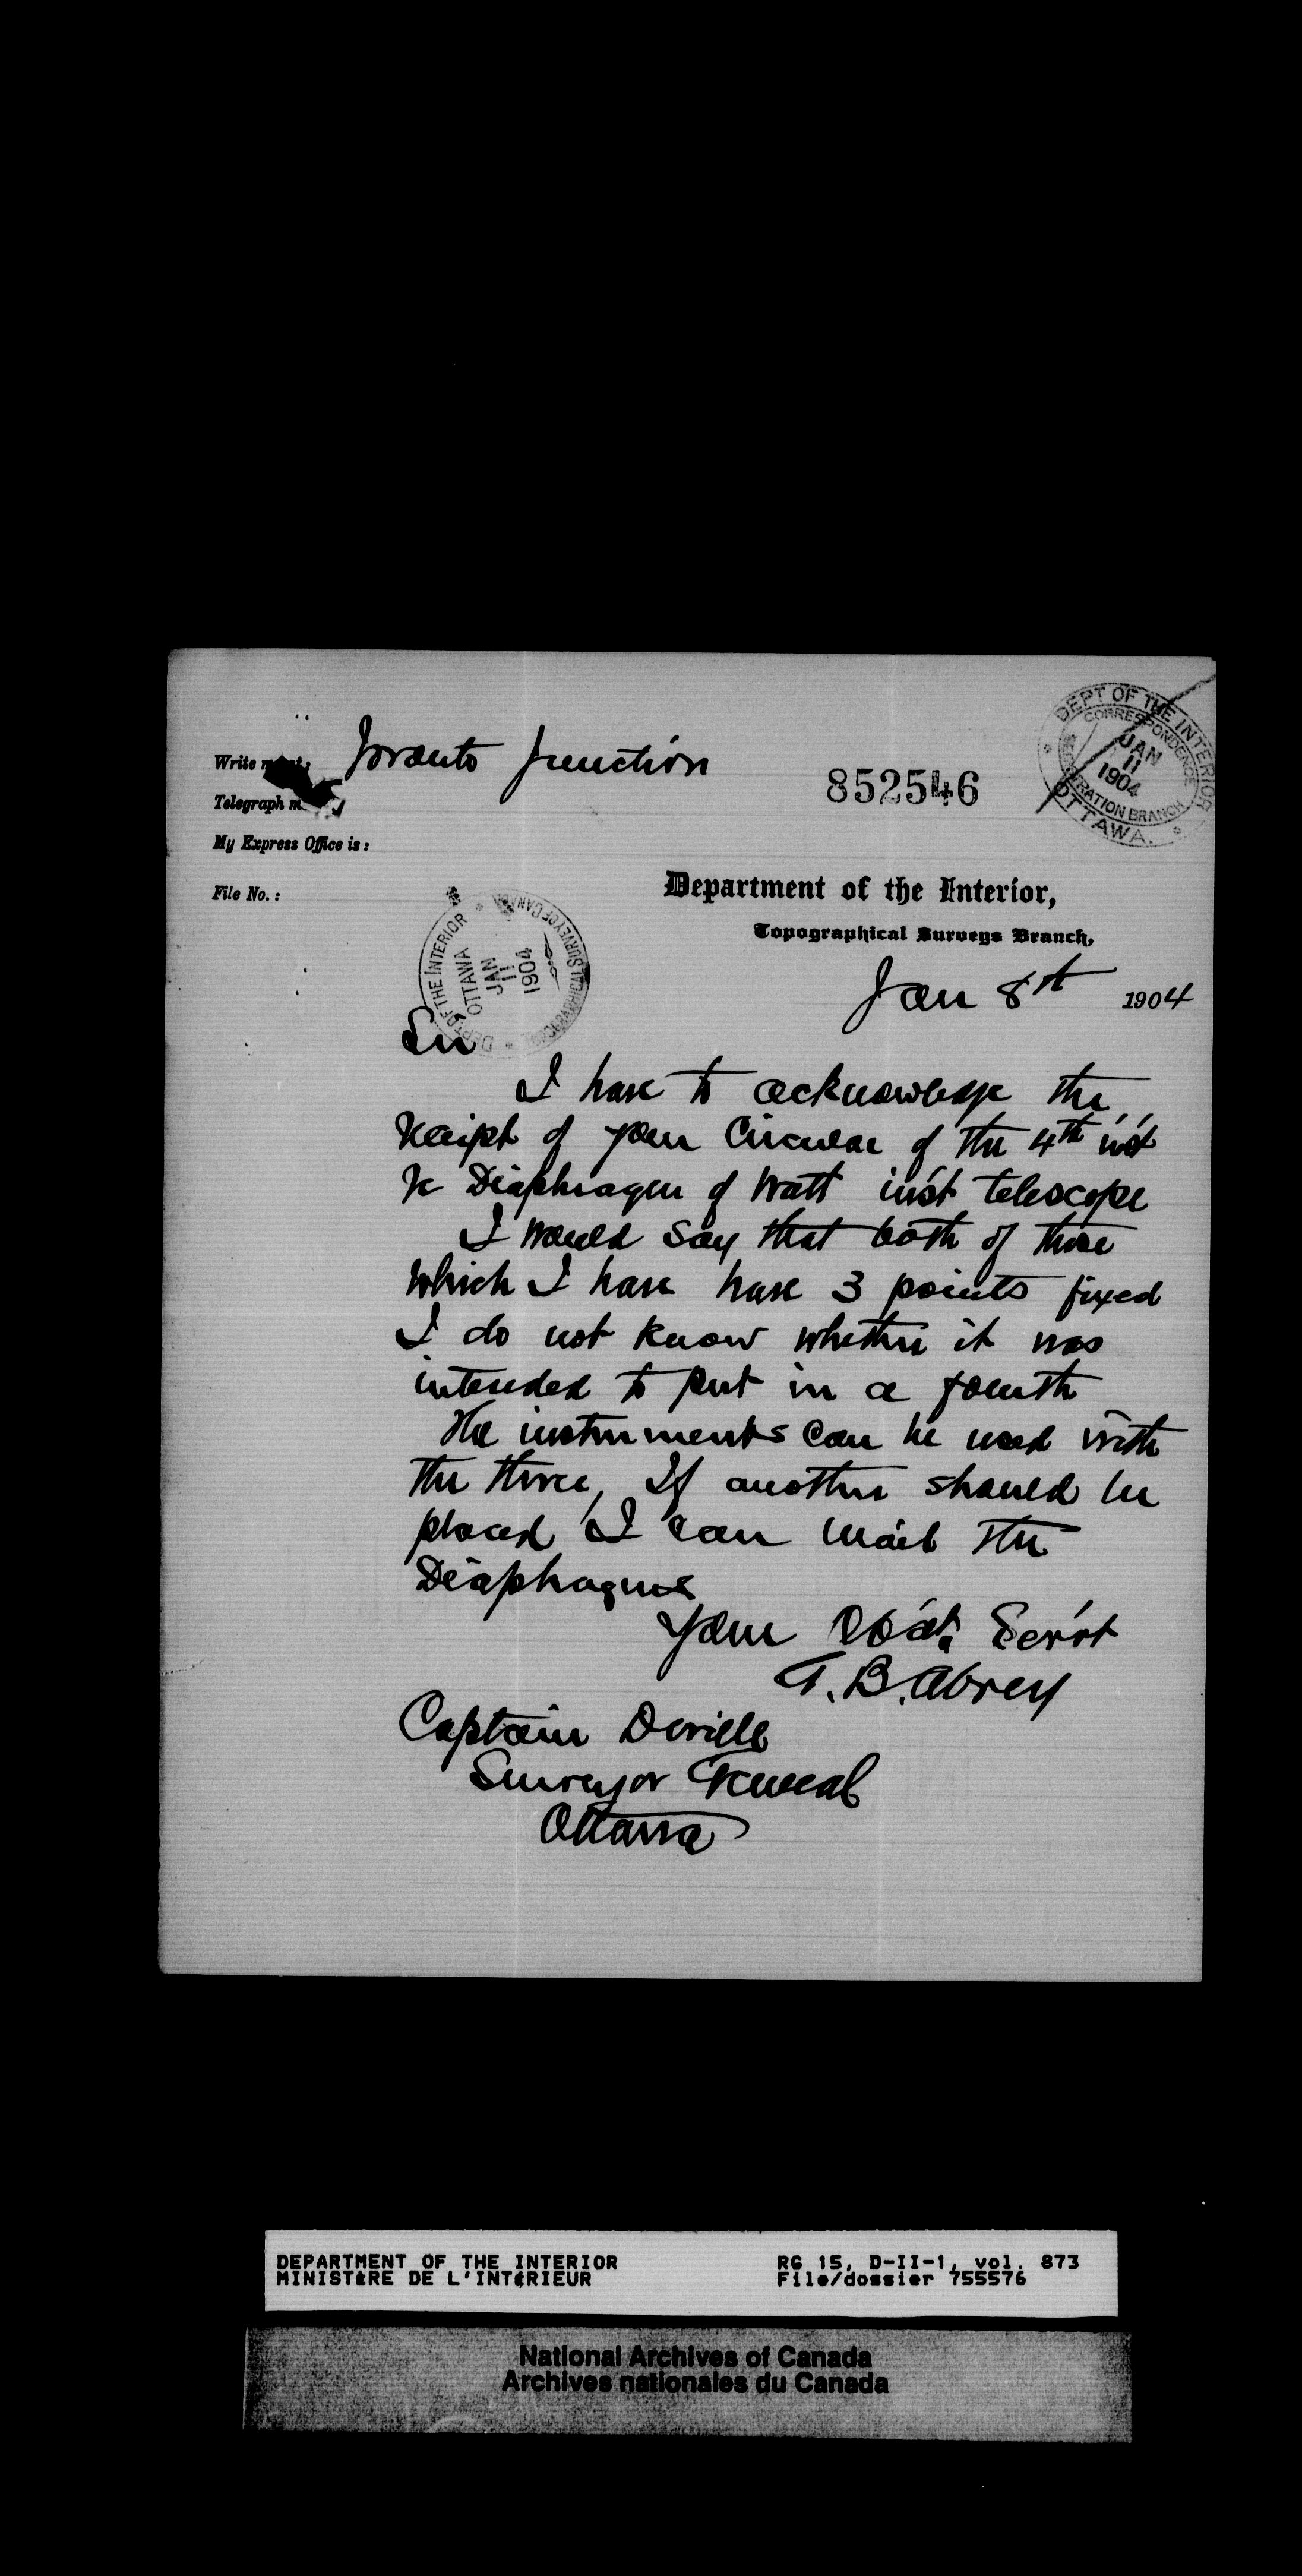 Write me at: Toronto Junction
Telegraph m
My Express Office is:
File No.:
852546
DEPT OF THE INTERIOR
CORRESPONDENCE
JAN
11
1904
REGISTRATION BRANCH
OTTAWA.
Department of the Interior,
Topographical Surveys Branch,
DEPT OF THE INTERIOR
OTTAWA
JAN
11
1904
TOPOGRAPHICAL SURVEY OF CANADA
Jan 8th 1904
Sir
I have to acknowledge the
receipt of your Circular of the 4th inst
re Diaphragm of Watt inst telescope
I would say that both of those
which I have have 3 points fixed
I do not know whether it was
intended to put in a fourth
The instruments can be used with
the three, If another should be
placed I can mail the
Diaphagms
Your Obdt, Servt
T. B. Abrey
Captain Deville
Surveyor General
Ottawa
DEPARTMENT OF THE INTERIOR RG 15, D-II-1, vol. 873
MINISTÈRE DE L'INTÉRIEUR File/dossier 755576
National Archives of Canada
Archives nationales du Canada